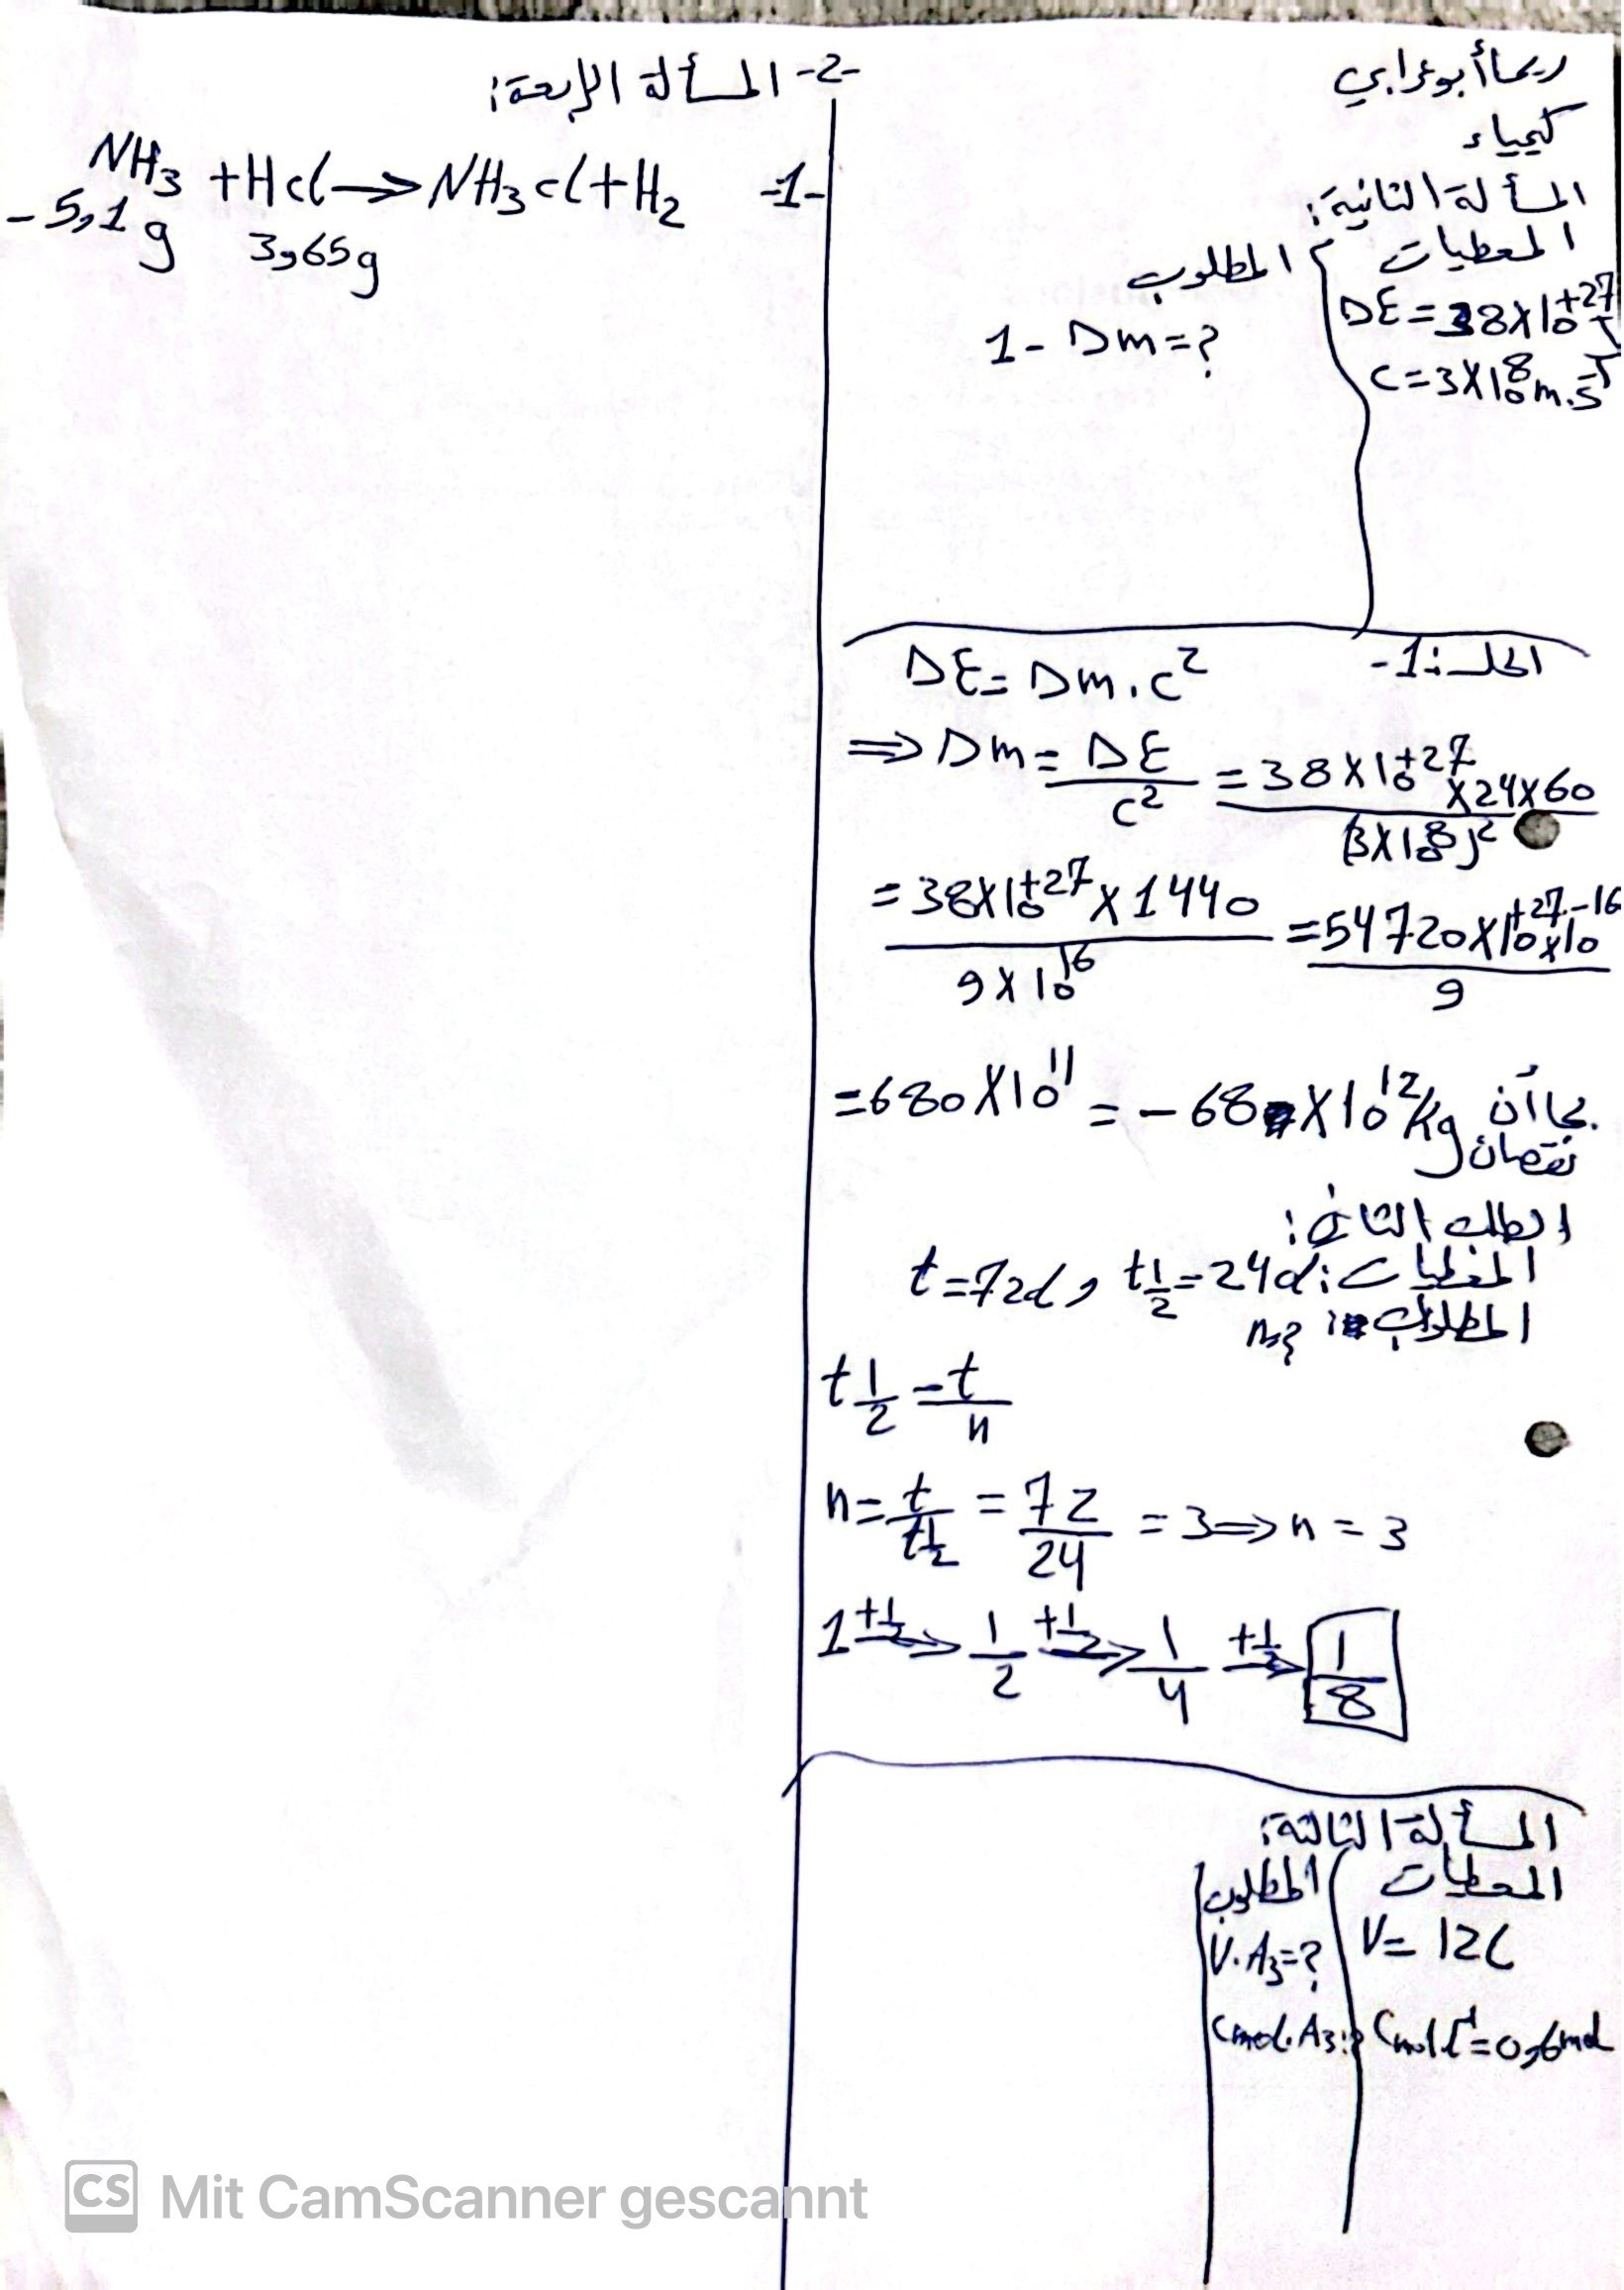 ريما أبو عرابي
كيمياء
المسألة الثانية:
المعطيات
ΔE = 38×10^{+27} J
C = 3×10^8 m.s^{-1}
المطلوب
1- Δm = ?
الحل: 1-
ΔE = Δm . c²
⇒ Δm = ΔE / c² = 38×10^{+27} ×24×60 / (3×10^8)²
= 38×10^{+27} × 1440 / 9×10^{16} = 54720×10^{+27}×10^{-16} / 9
= 680×10^{11} = -68×10^{12} kg بما أن
نقصان
الطلب الثاني:
المعطيات: t = 72d , t½ = 24d
المطلوب: n=?
t½ = t / n
n = t / t½ = 72 / 24 = 3 ⇒ n = 3
1 +½→ 1/2 +½→ 1/4 +½→ 1/8
المسألة الثالثة:
المعطيات
V = 12L
C mol.l^{-1} = 0,6 mol
المطلوب
V.A₃ = ?
C mol.A₃ = ?
-2- المسألة الرابعة:
-1- NH₃ + Hcl → NH₃cl + H₂
-5,1g 3,65g
CS Mit CamScanner gescannt